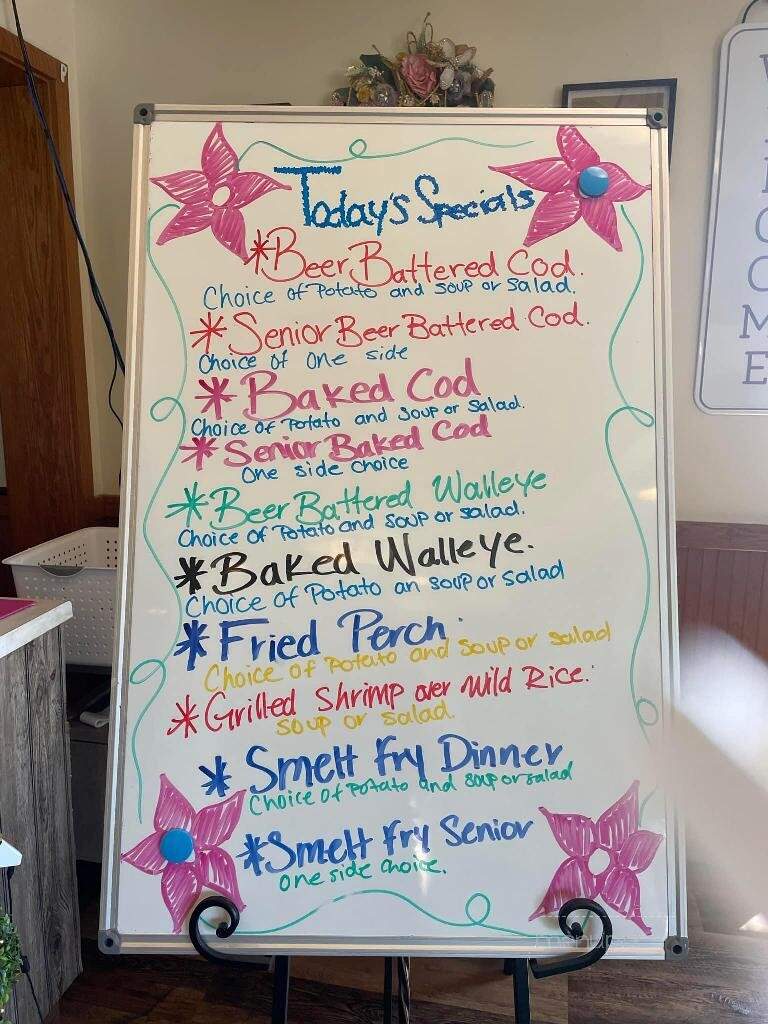 Today's Specials
*Beer Battered Cod.
Choice of Potato and soup or salad.
*Senior Beer Battered Cod.
Choice of one side
*Baked Cod
Choice of Potato and soup or salad.
*Senior Baked Cod
One side choice
*Beer Battered Walleye
Choice of Potato and soup or salad.
*Baked Walleye.
Choice of Potato an soup or salad
*Fried Perch.
Choice of Potato and soup or salad
*Grilled Shrimp over Wild Rice.
soup or salad.
*Smelt Fry Dinner
Choice of Potato and soup or salad
*Smelt Fry Senior
one side choice.